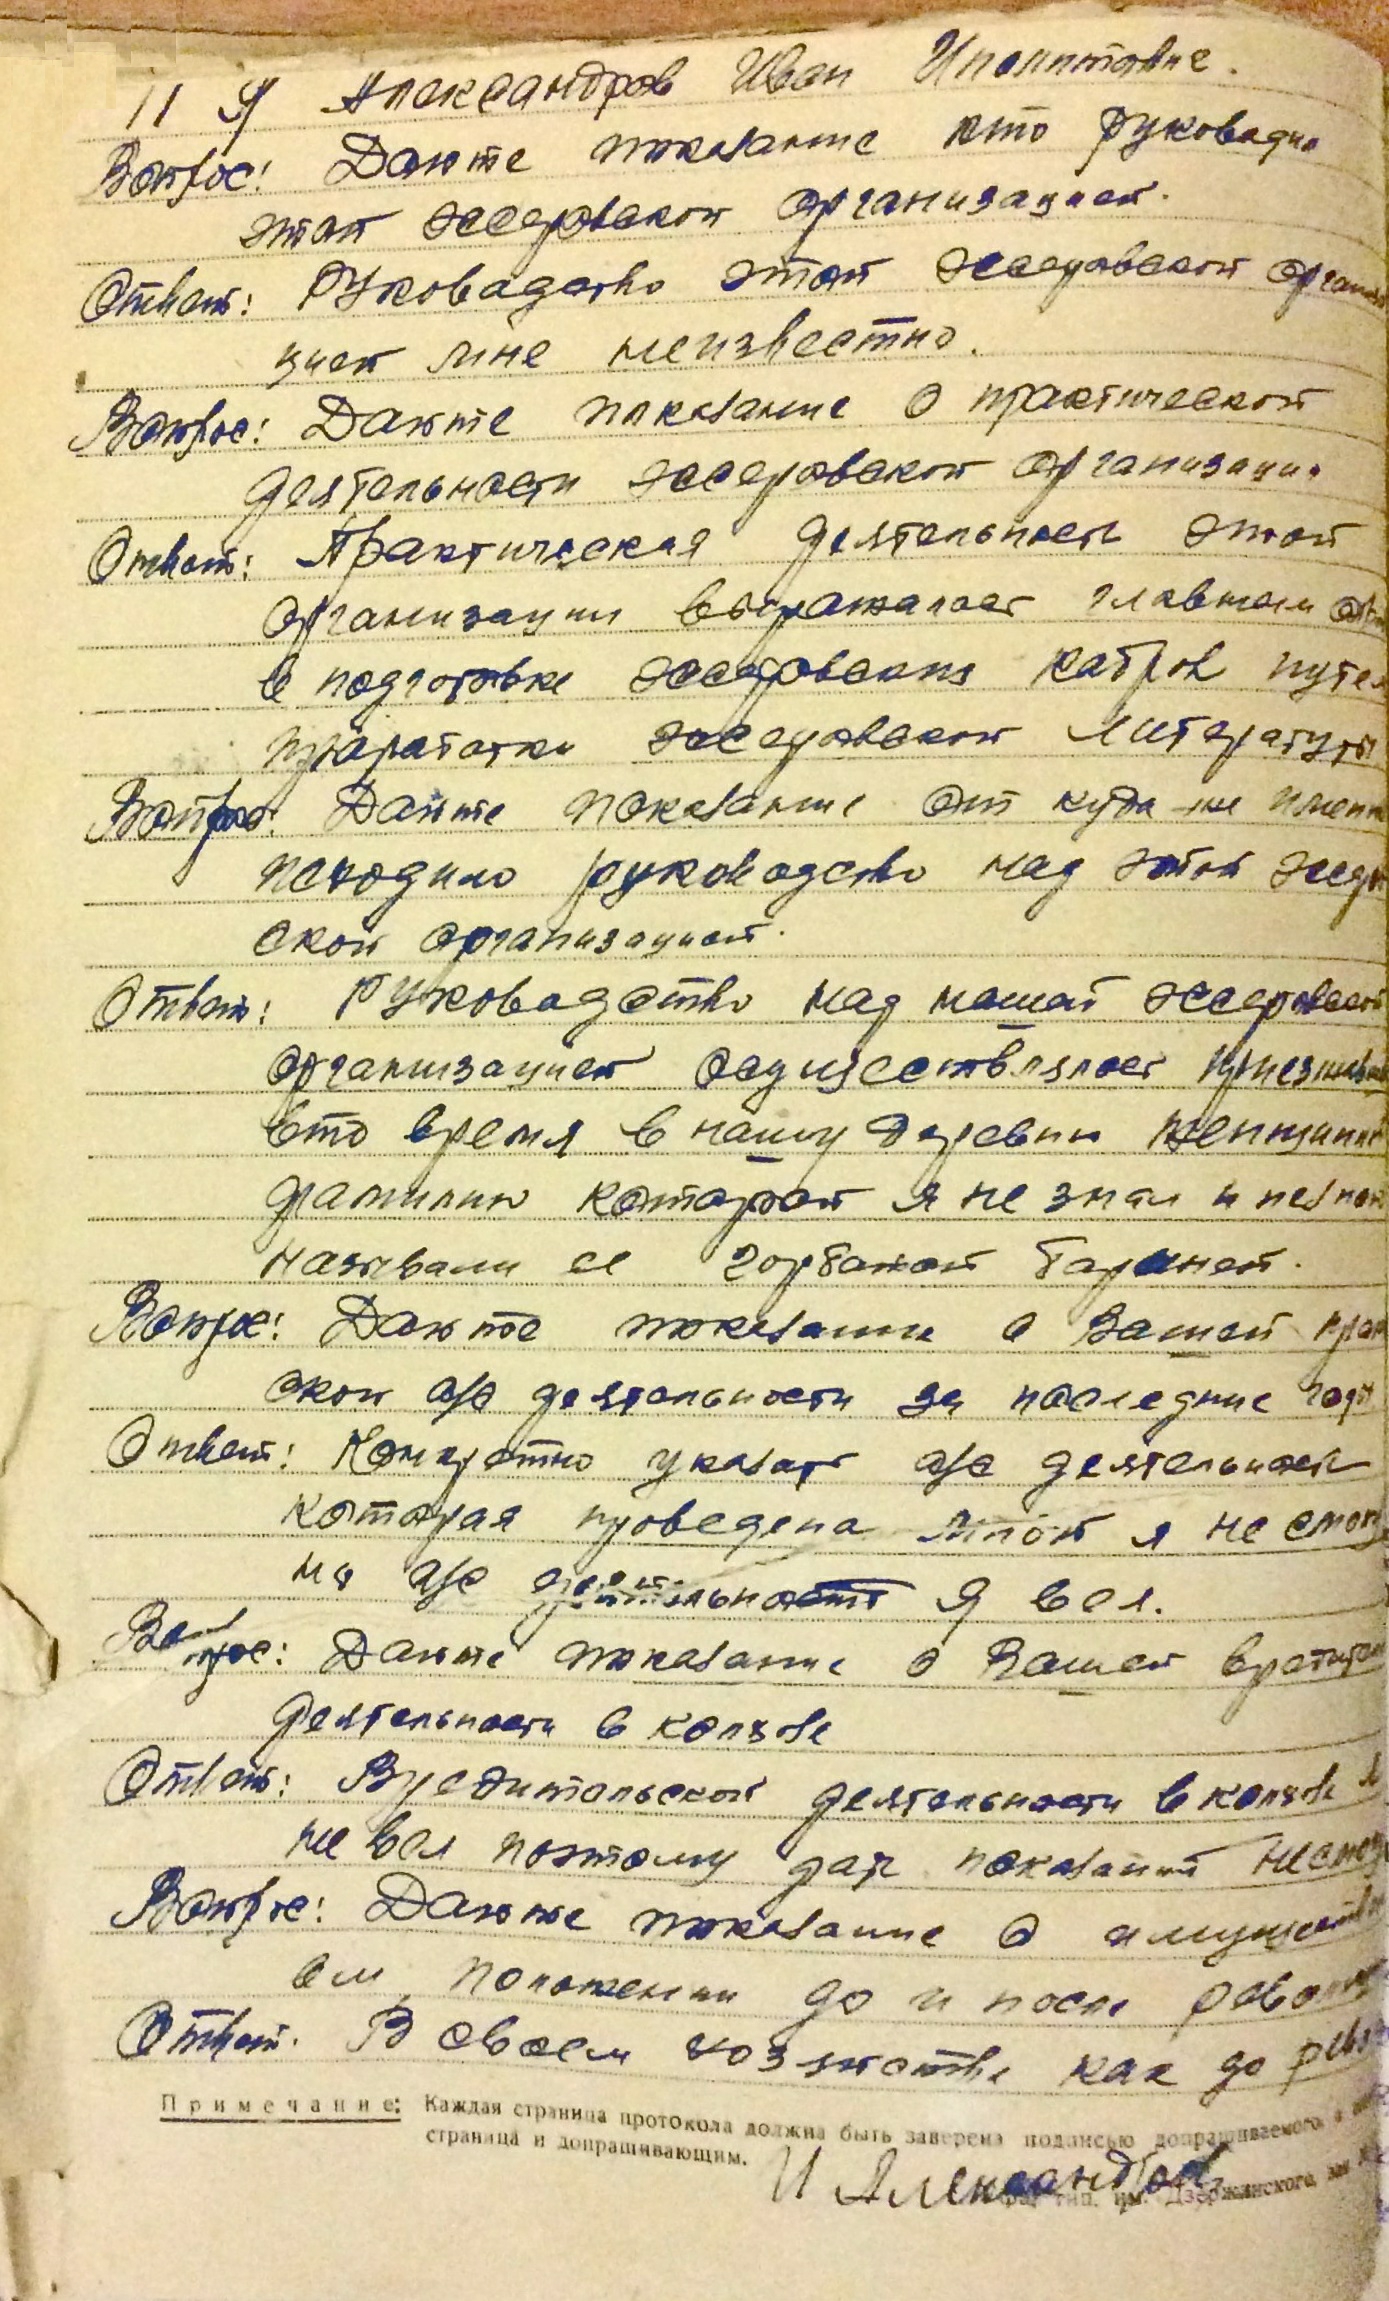 11 Я Александров Иван Иполитович.
Вопрос: Дайте показание кто руководил
этой эссеровской организацией.
Ответ: Руководство этой эссеровской органи
зацией мне неизвестно.
Вопрос: Дайте показание о практической
деятельности эссеровской организации
Ответ: Практическая деятельность этой
организации выражалась главным
в подготовке эссеровских кадров путем
проработки эссеровской литературы
Вопрос: Дайте показание от куда же имен
исходило руководство над этой эссеров
ской организацией.
Ответ: Руководство над нашей эссеровской
организацией осуществлялось
вто время в нашу деревни женщиной
фамилию которой я не знал и
называли ее горбатой барыней.
Вопрос: Дайте показание о Вашей
ской а/с деятельности за последние годы
Ответ: Конкретно указать а/с деятельность
которая проведена мной я не смогу
но а/с деятельность я вел.
Вопрос: Дайте показание о Вашей вредител
деятельности в колхозе
Ответ: Вредительской деятельности в колхозе я
не вел поэтому дать показаний не смогу
Вопрос: Дайте показание о имуществен
ом положении до и после револ
Ответ: В своем хозяйстве как до рев
Примечание: Каждая страница протокола должна быть заверена подписью допрашиваемого, а
страница и допрашивающим.
И Александров
тип. им. Дзержинского